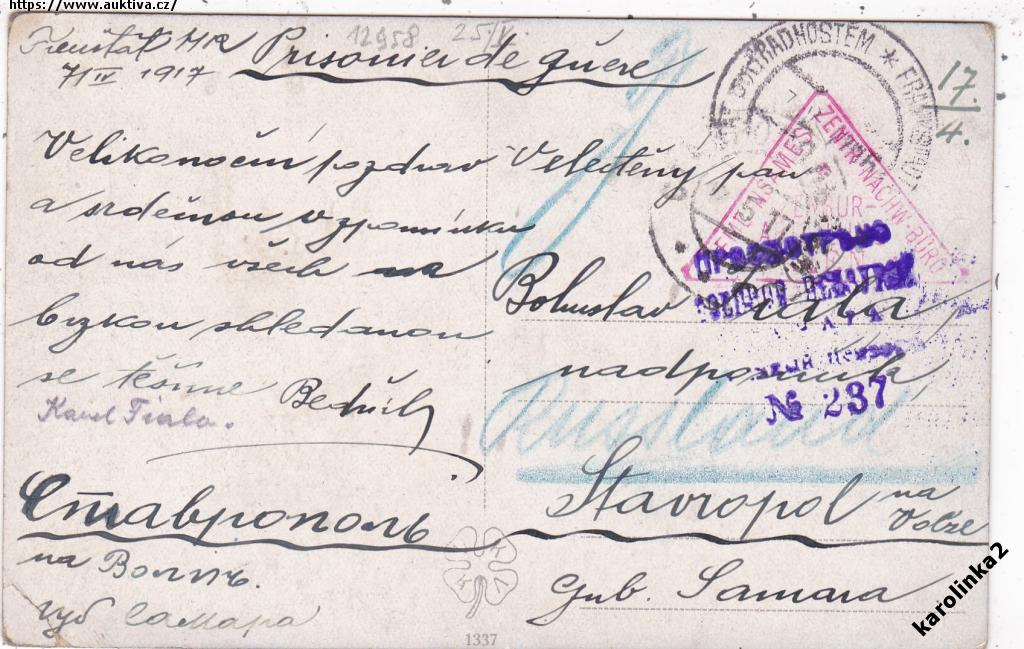 https://www.auktiva.cz/
12958 25/V.
7/IV 1917
Prisonier de guere
17.
4.
Velikonoční pozdrav
a srdečnou vzpomínku
od nás všech na
brzkou shledanou
se těšíme Bedřich
Karel Fiala.
Ставрополь
на Волгъ.
губ Самара
Velectěný pan
Bohuslav Fiala,
nadporučík
Russland
Stavropol na
Volze
Gub. Samara
POD RADHOSTĚM * FRANKSTADT
ZENTR. NACHW. BÜRO
№ 237
1337
karolinka2